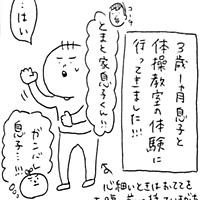 3歳1ヵ月息子と
体操教室の体験に
行ってきました!!!
コーチ
とまと家息子くん!!
…はい
ガンバレ
息子…!!
心細いときはおててを